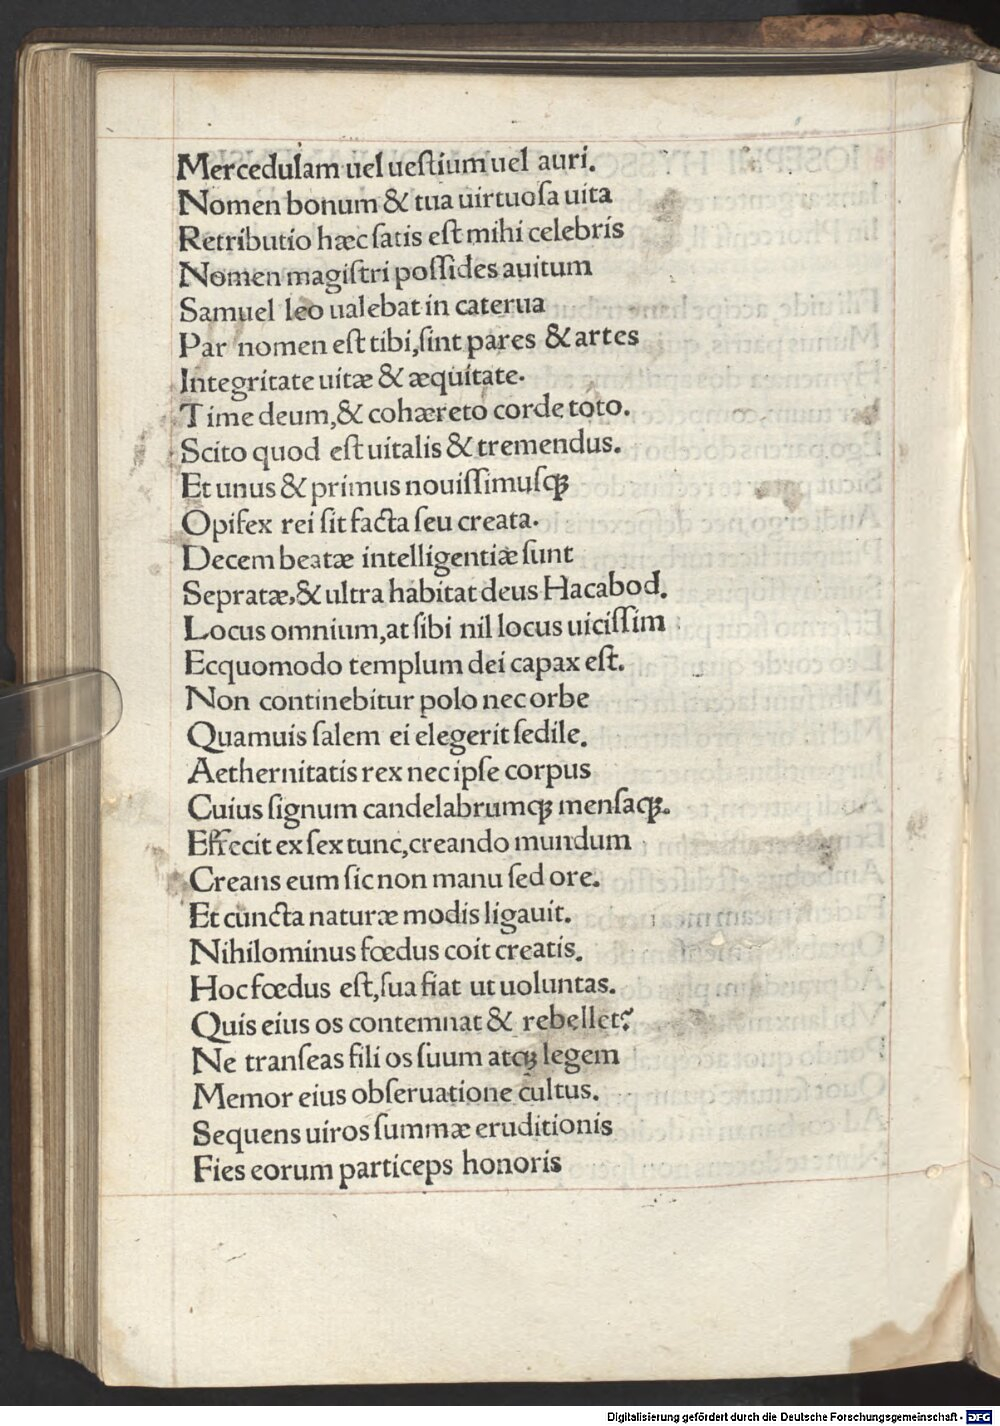 Mercedulam uel ueſtium uel auri.
Nomen bonum & tua uirtuoſa uita
Retributio hæc ſatis eſt mihi celebris
Nomen magiſtri poſſides auitum
Samuel leo ualebat in caterua
Par nomen eſt tibi,ſint pares & artes
Integritate uitæ & æquitate.
Time deum,& cohæreto corde toto.
Scito quod eſt uitalis & tremendus.
Et unus & primus nouiſſimuſqꝫ
Opifex rei ſit facta ſeu creata.
Decem beatæ intelligentiæ ſunt
Sepratæ,& ultra habitat deus Hacabod.
Locus omnium,at ſibi nil locus uiciſſim
Ecquomodo templum dei capax eſt.
Non continebitur polo nec orbe
Quamuis ſalem ei elegerit ſedile.
Aethernitatis rex nec ipſe corpus
Cuius ſignum candelabrumqꝫ menſaqꝫ.
Effecit ex ſex tunc,creando mundum
Creans eum ſic non manu ſed ore.
Et cuncta naturæ modis ligauit.
Nihilominus fœdus coit creatis.
Hoc fœdus eſt,ſua fiat ut uoluntas.
Quis eius os contemnat & rebellet?
Ne tranſeas fili os ſuum atqꝫ legem
Memor eius obſeruatione cultus.
Sequens uiros ſummæ eruditionis
Fies eorum particeps honoris
Digitalisierung gefördert durch die Deutsche Forschungsgemeinschaft - DFG